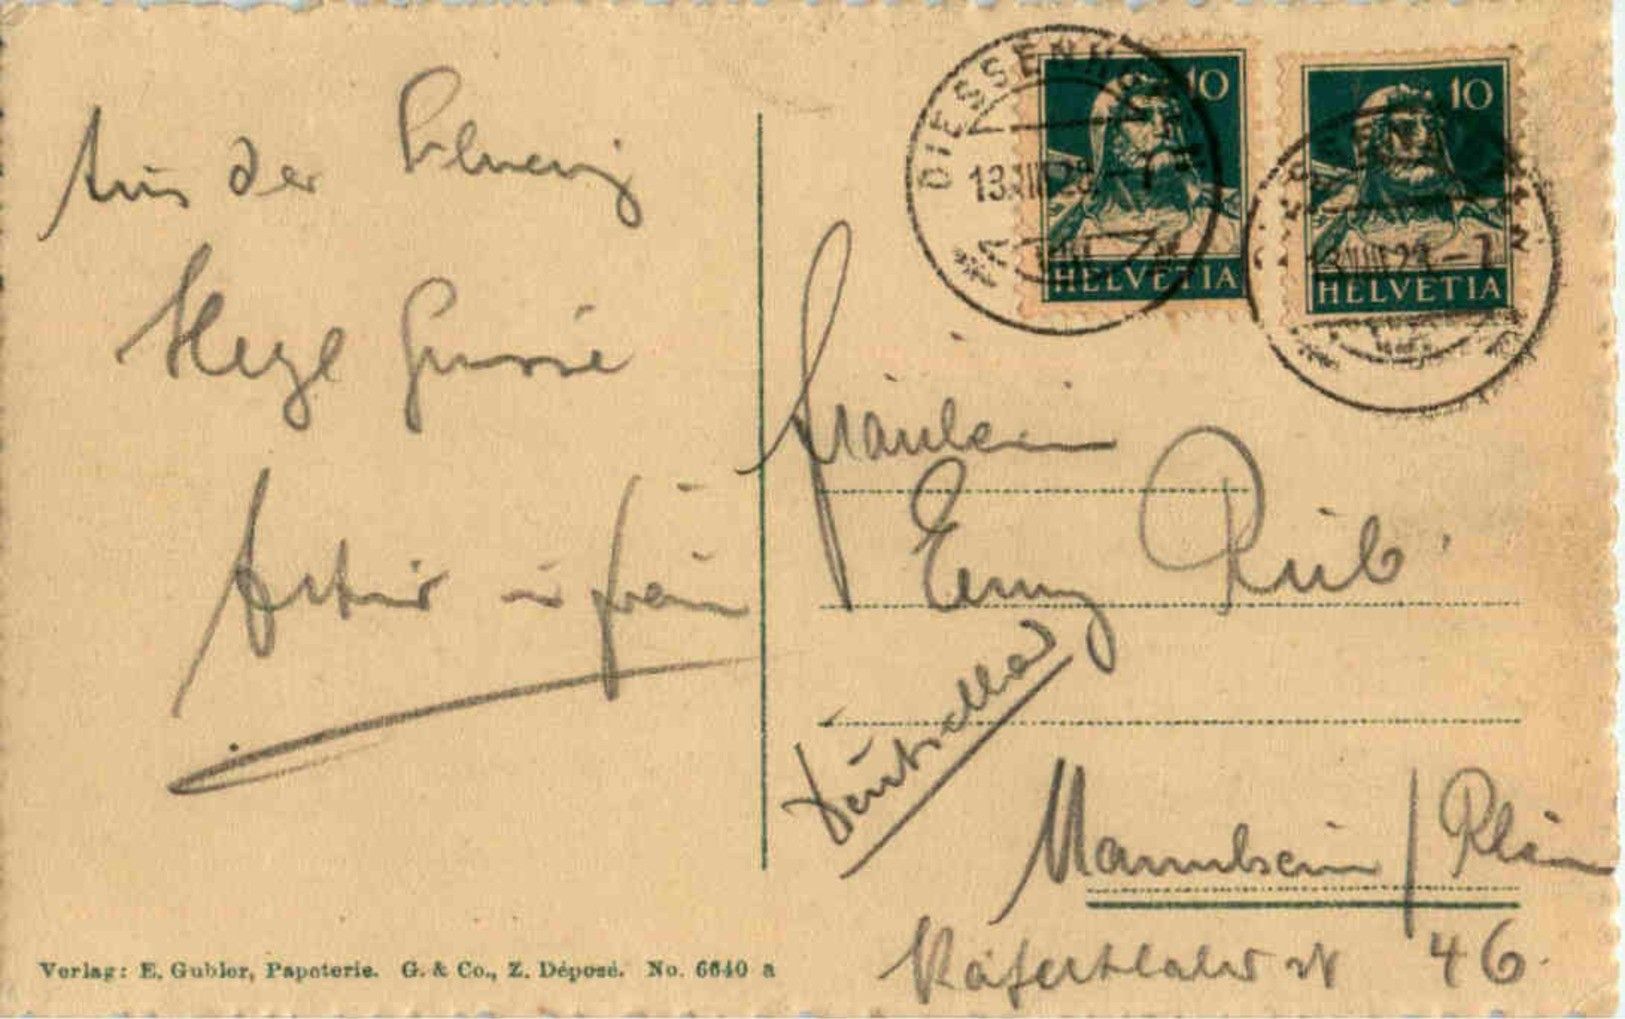 Aus der Schweiz
Herzl Grüsse
Artur u Frau
DIESSENHOFEN
13.VIII.28.-7
10
HELVETIA
10
HELVETIA
Fräulein
Emy Rüb
Deutschland
Mannheim / Rhein
Käferthalerstr 46.
Verlag: E. Gubler, Papeterie. G. & Co., Z. Déposé. No. 6640 a